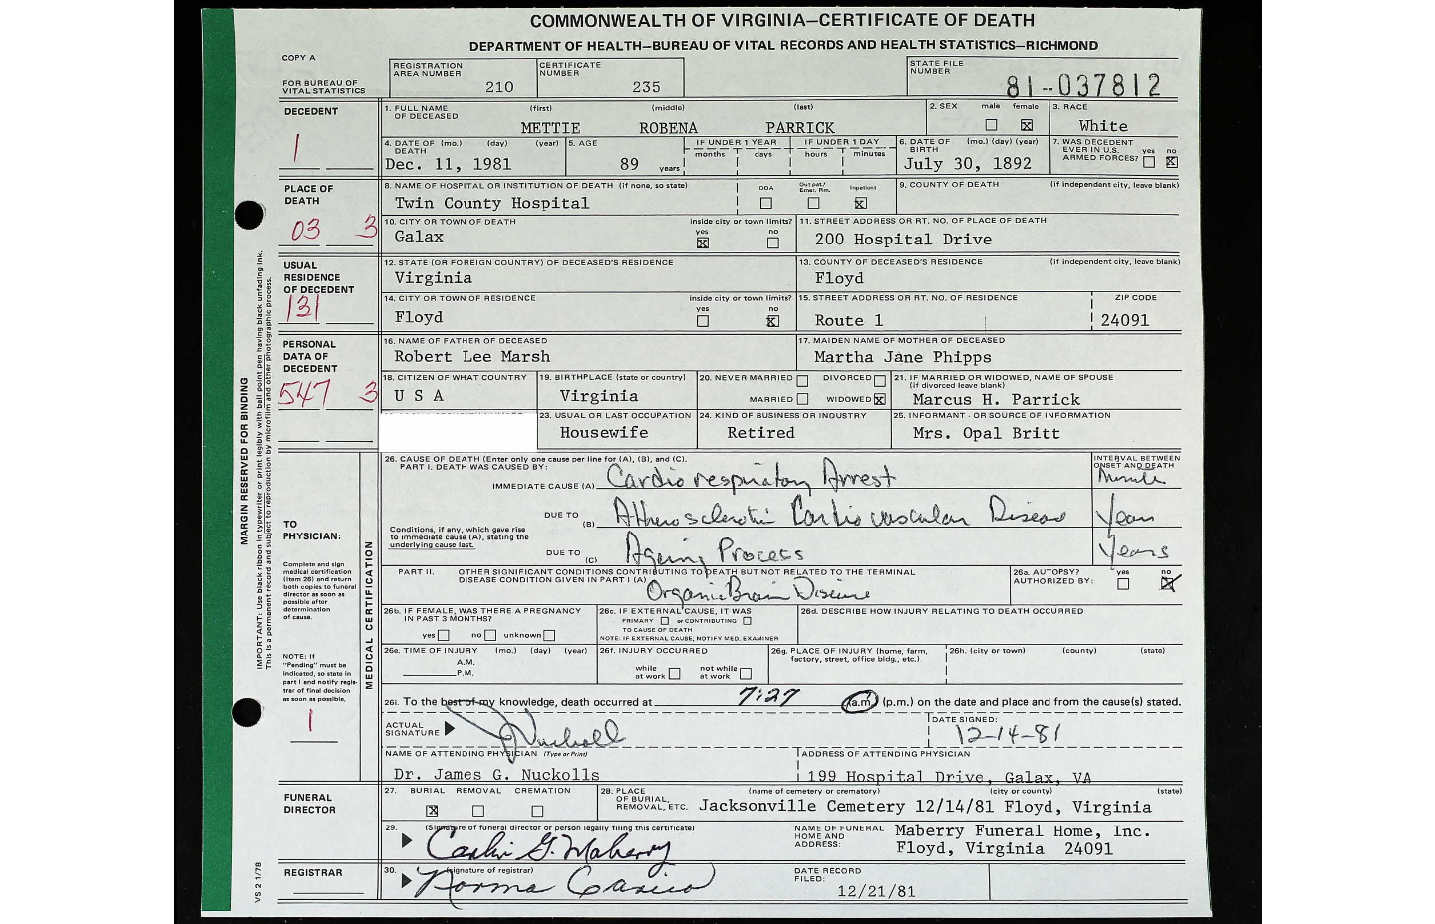 COMMONWEALTH OF VIRGINIA—CERTIFICATE OF DEATH
DEPARTMENT OF HEALTH—BUREAU OF VITAL RECORDS AND HEALTH STATISTICS—RICHMOND
COPY A
FOR BUREAU OF VITAL STATISTICS
REGISTRATION AREA NUMBER 210
CERTIFICATE NUMBER 235
STATE FILE NUMBER 81-037812
DECEDENT
1
1. FULL NAME OF DECEASED (first) (middle) (last)
METTIE ROBENA PARRICK
2. SEX male female ☒
3. RACE
White
4. DATE OF DEATH (mo.) (day) (year)
Dec. 11, 1981
5. AGE
89 years
IF UNDER 1 YEAR months days
IF UNDER 1 DAY hours minutes
6. DATE OF BIRTH (mo.) (day) (year)
July 30, 1892
7. WAS DECEDENT EVER IN U.S. ARMED FORCES? yes ☐ no ☒
PLACE OF DEATH
03 3
8. NAME OF HOSPITAL OR INSTITUTION OF DEATH (if none, so state)
Twin County Hospital
DOA ☐ Out pat./Emer. Rm. ☐ Inpatient ☒
9. COUNTY OF DEATH (if independent city, leave blank)
10. CITY OR TOWN OF DEATH
Galax
inside city or town limits? yes ☒ no ☐
11. STREET ADDRESS OR RT. NO. OF PLACE OF DEATH
200 Hospital Drive
USUAL RESIDENCE OF DECEDENT
131
12. STATE (OR FOREIGN COUNTRY) OF DECEASED'S RESIDENCE
Virginia
13. COUNTY OF DECEASED'S RESIDENCE (if independent city, leave blank)
Floyd
14. CITY OR TOWN OF RESIDENCE
Floyd
inside city or town limits? yes ☐ no ☒
15. STREET ADDRESS OR RT. NO. OF RESIDENCE
Route 1
ZIP CODE
24091
PERSONAL DATA OF DECEDENT
547 3
16. NAME OF FATHER OF DECEASED
Robert Lee Marsh
17. MAIDEN NAME OF MOTHER OF DECEASED
Martha Jane Phipps
18. CITIZEN OF WHAT COUNTRY
U S A
19. BIRTHPLACE (state or country)
Virginia
20. NEVER MARRIED ☐ DIVORCED ☐
MARRIED ☐ WIDOWED ☒
21. IF MARRIED OR WIDOWED, NAME OF SPOUSE (if divorced leave blank)
Marcus H. Parrick
23. USUAL OR LAST OCCUPATION
Housewife
24. KIND OF BUSINESS OR INDUSTRY
Retired
25. INFORMANT - OR SOURCE OF INFORMATION
Mrs. Opal Britt
TO PHYSICIAN:
Complete and sign medical certification (item 26) and return both copies to funeral director as soon as possible after determination of cause.
NOTE: If "Pending" must be indicated, so state in part I and notify registrar of final decision as soon as possible.
1
MEDICAL CERTIFICATION
26. CAUSE OF DEATH (Enter only one cause per line for (A), (B), and (C).
PART I. DEATH WAS CAUSED BY:
IMMEDIATE CAUSE (A) Cardiorespiratory Arrest
INTERVAL BETWEEN ONSET AND DEATH
DUE TO (B) Atherosclerotic Cardiovascular Disease
Years
Conditions, if any, which gave rise to immediate cause (A), stating the underlying cause last.
DUE TO (C) Ageing Process
Years
PART II. OTHER SIGNIFICANT CONDITIONS CONTRIBUTING TO DEATH BUT NOT RELATED TO THE TERMINAL DISEASE CONDITION GIVEN IN PART I (A)
Organic Brain Disease
26a. AUTOPSY? AUTHORIZED BY: yes ☐ no ☒
26b. IF FEMALE, WAS THERE A PREGNANCY IN PAST 3 MONTHS?
yes ☐ no ☐ unknown ☐
26c. IF EXTERNAL CAUSE, IT WAS
PRIMARY ☐ or CONTRIBUTING ☐
TO CAUSE OF DEATH
NOTE: IF EXTERNAL CAUSE, NOTIFY MED. EXAMINER
26d. DESCRIBE HOW INJURY RELATING TO DEATH OCCURRED
26e. TIME OF INJURY (mo.) (day) (year)
A.M.
P.M.
26f. INJURY OCCURRED
while at work ☐ not while at work ☐
26g. PLACE OF INJURY (home, farm, factory, street, office bldg., etc.)
26h. (city or town) (county) (state)
26i. To the best of my knowledge, death occurred at 7:27 (a.m.) (p.m.) on the date and place and from the cause(s) stated.
ACTUAL SIGNATURE Nuckolls
DATE SIGNED:
12-14-81
NAME OF ATTENDING PHYSICIAN (Type or Print)
Dr. James G. Nuckolls
ADDRESS OF ATTENDING PHYSICIAN
199 Hospital Drive, Galax, VA
FUNERAL DIRECTOR
27. BURIAL ☒ REMOVAL ☐ CREMATION ☐
28. PLACE OF BURIAL, REMOVAL, ETC. (name of cemetery or crematory) (city or county) (state)
Jacksonville Cemetery 12/14/81 Floyd, Virginia
29. (Signature of funeral director or person legally filing this certificate)
G. Maberry
NAME OF FUNERAL HOME AND ADDRESS:
Maberry Funeral Home, Inc.
Floyd, Virginia 24091
REGISTRAR
30. (signature of registrar)
Norma
DATE RECORD FILED:
12/21/81
MARGIN RESERVED FOR BINDING
IMPORTANT: Use black ribbon in typewriter or print legibly with ball point pen having black unfading ink.
This is a permanent record and subject to reproduction by microfilm and other photographic process.
VS 2 1/78